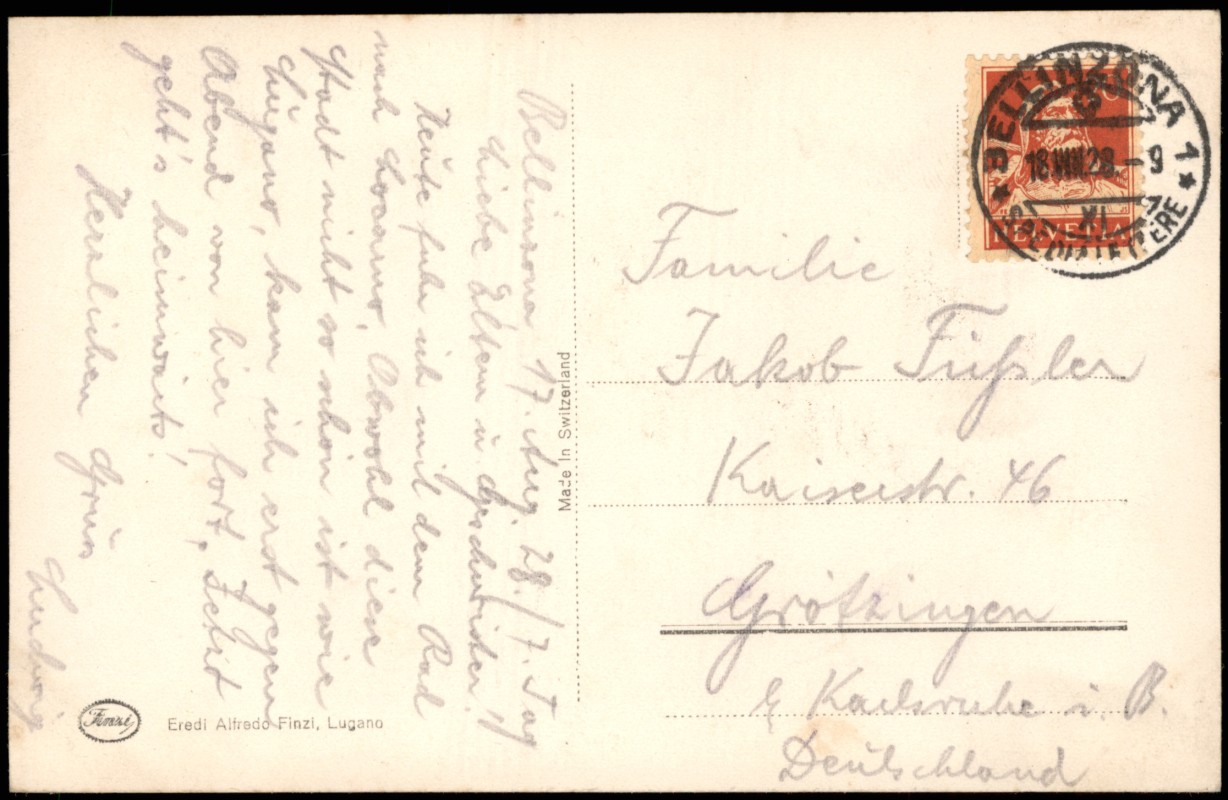 Bellinzona 17. Aug 28. / 7. Tag
Liebe Eltern u Geschwister!
Heute fuhr ich mit dem Rad
nach Locarno. Obwohl diese
Stadt nicht so schön ist wie
Lugano, kam ich erst gegen
Abend von hier fort. Jetzt
geht's heimwärts!
Herzlichen Gruss
Ludwig
Made in Switzerland
Eredi Alfredo Finzi, Lugano
Finzi
BELLINZONA 1
18.VIII.28.-9
XI
SPEDIZ. LETTERE
HELVETIA
Familie
Jakob Füßler
Kaiserstr. 46
Grötzingen
b/ Karlsruhe i. B.
Deutschland